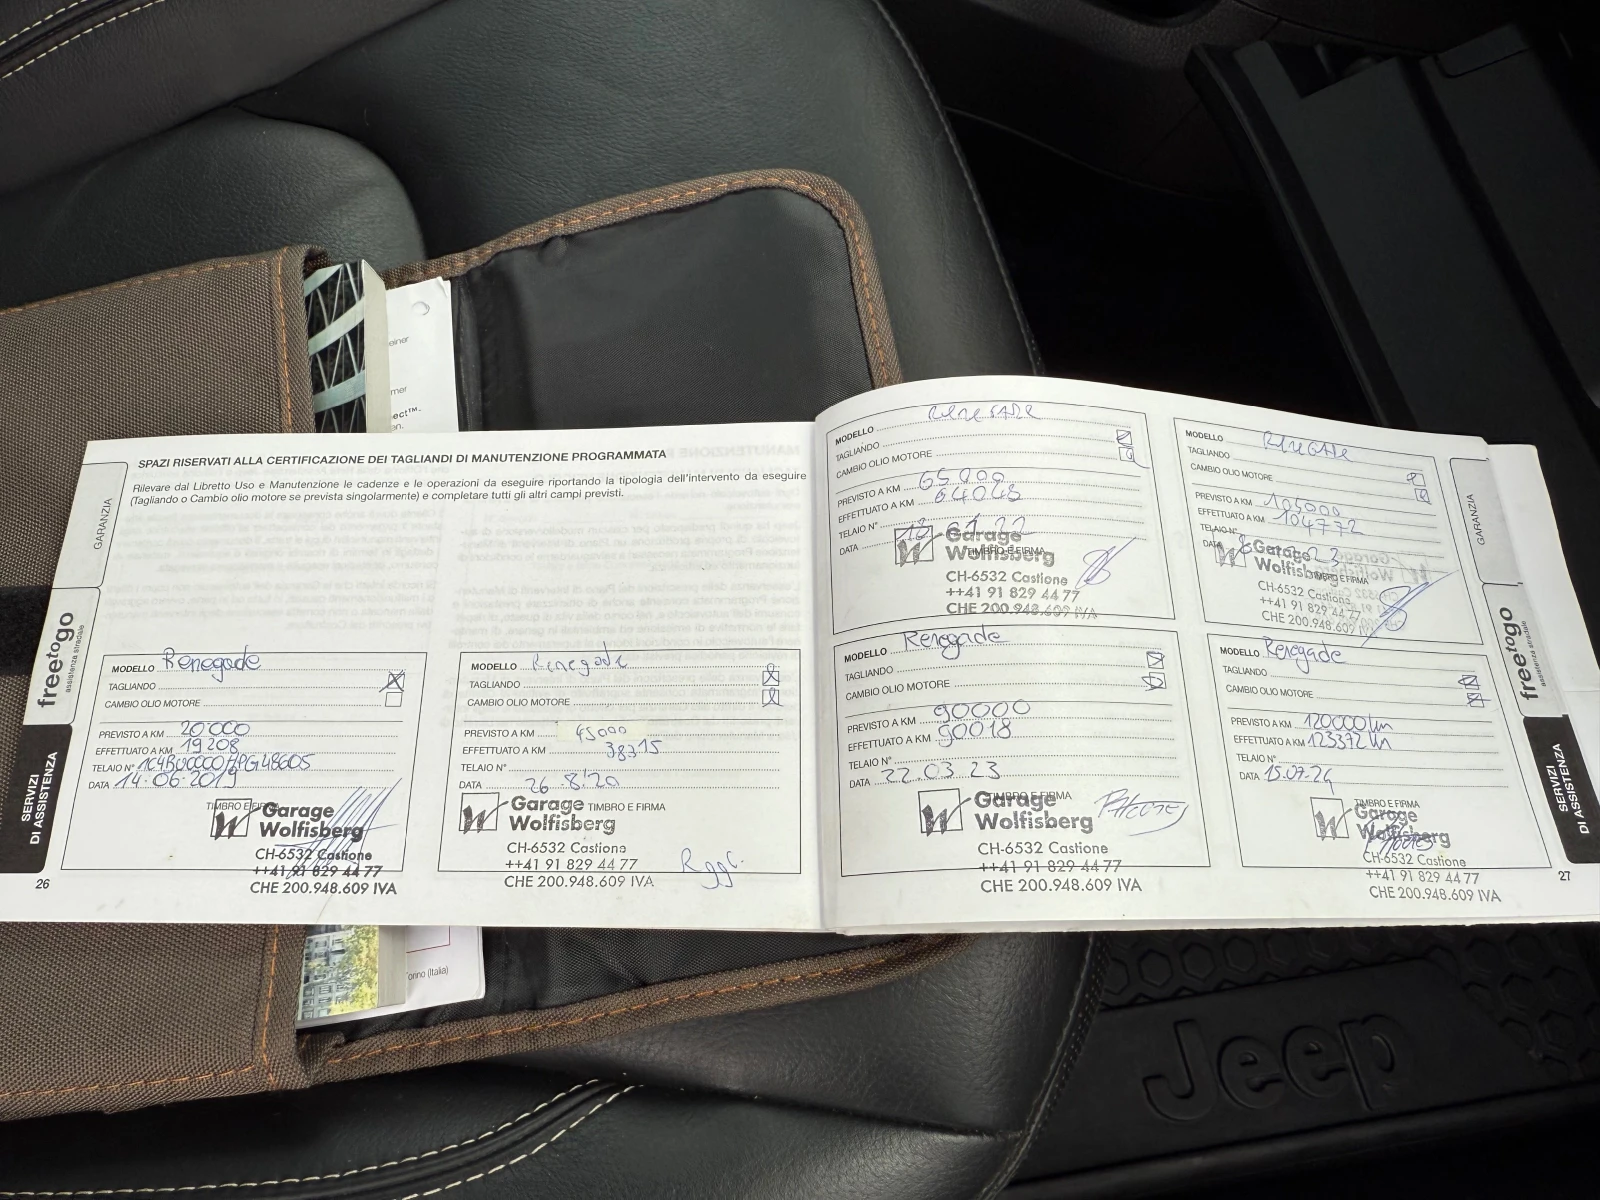 einer
mer
ect™.
en.
SPAZI RISERVATI ALLA CERTIFICAZIONE DEI TAGLIANDI DI MANUTENZIONE PROGRAMMATA
Rilevare dal Libretto Uso e Manutenzione le cadenze e le operazioni da eseguire riportando la tipologia dell'intervento da eseguire
(Tagliando o Cambio olio motore se prevista singolarmente) e completare tutti gli altri campi previsti.
GARANZIA
freetogo
assistenza stradale
SERVIZI
DI ASSISTENZA
MODELLO Renegade
TAGLIANDO
CAMBIO OLIO MOTORE
PREVISTO A KM 20000
EFFETTUATO A KM 19208
TELAIO N°
DATA 14.06.2019
TIMBRO E FIRMA
Garage
Wolfisberg
CH-6532 Castione
++41 91 829 44 77
CHE 200.948.609 IVA
26
MODELLO Renegade
TAGLIANDO
CAMBIO OLIO MOTORE
PREVISTO A KM 45000
EFFETTUATO A KM 38315
TELAIO N°
DATA 26.8.20
Garage TIMBRO E FIRMA
Wolfisberg
CH-6532 Castione
++41 91 829 44 77
CHE 200.948.609 IVA
MODELLO Renegade
TAGLIANDO
CAMBIO OLIO MOTORE
PREVISTO A KM 65000
EFFETTUATO A KM 64048
TELAIO N°
DATA
Garage
Wolfisberg
TIMBRO E FIRMA
CH-6532 Castione
++41 91 829 44 77
CHE 200.948.609 IVA
MODELLO Renegade
TAGLIANDO
CAMBIO OLIO MOTORE
PREVISTO A KM 90000
EFFETTUATO A KM 90018
TELAIO N°
DATA 22.03.23
TIMBRO E FIRMA
Garage
Wolfisberg
CH-6532 Castione
++41 91 829 44 77
CHE 200.948.609 IVA
MODELLO Renegade
TAGLIANDO
CAMBIO OLIO MOTORE
PREVISTO A KM 105000
EFFETTUATO A KM 104772
TELAIO N°
DATA
Garage
Wolfisberg
TIMBRO E FIRMA
CH-6532 Castione
++41 91 829 44 77
CHE 200.948.609 IVA
MODELLO Renegade
TAGLIANDO
CAMBIO OLIO MOTORE
PREVISTO A KM 120000 km
EFFETTUATO A KM 123372 km
TELAIO N°
DATA 15.07.24
TIMBRO E FIRMA
Garage
Wolfisberg
CH-6532 Castione
++41 91 829 44 77
CHE 200.948.609 IVA
GARANZIA
freetogo
assistenza stradale
SERVIZI
DI ASSISTENZA
27
Torino (Italia)
Jeep